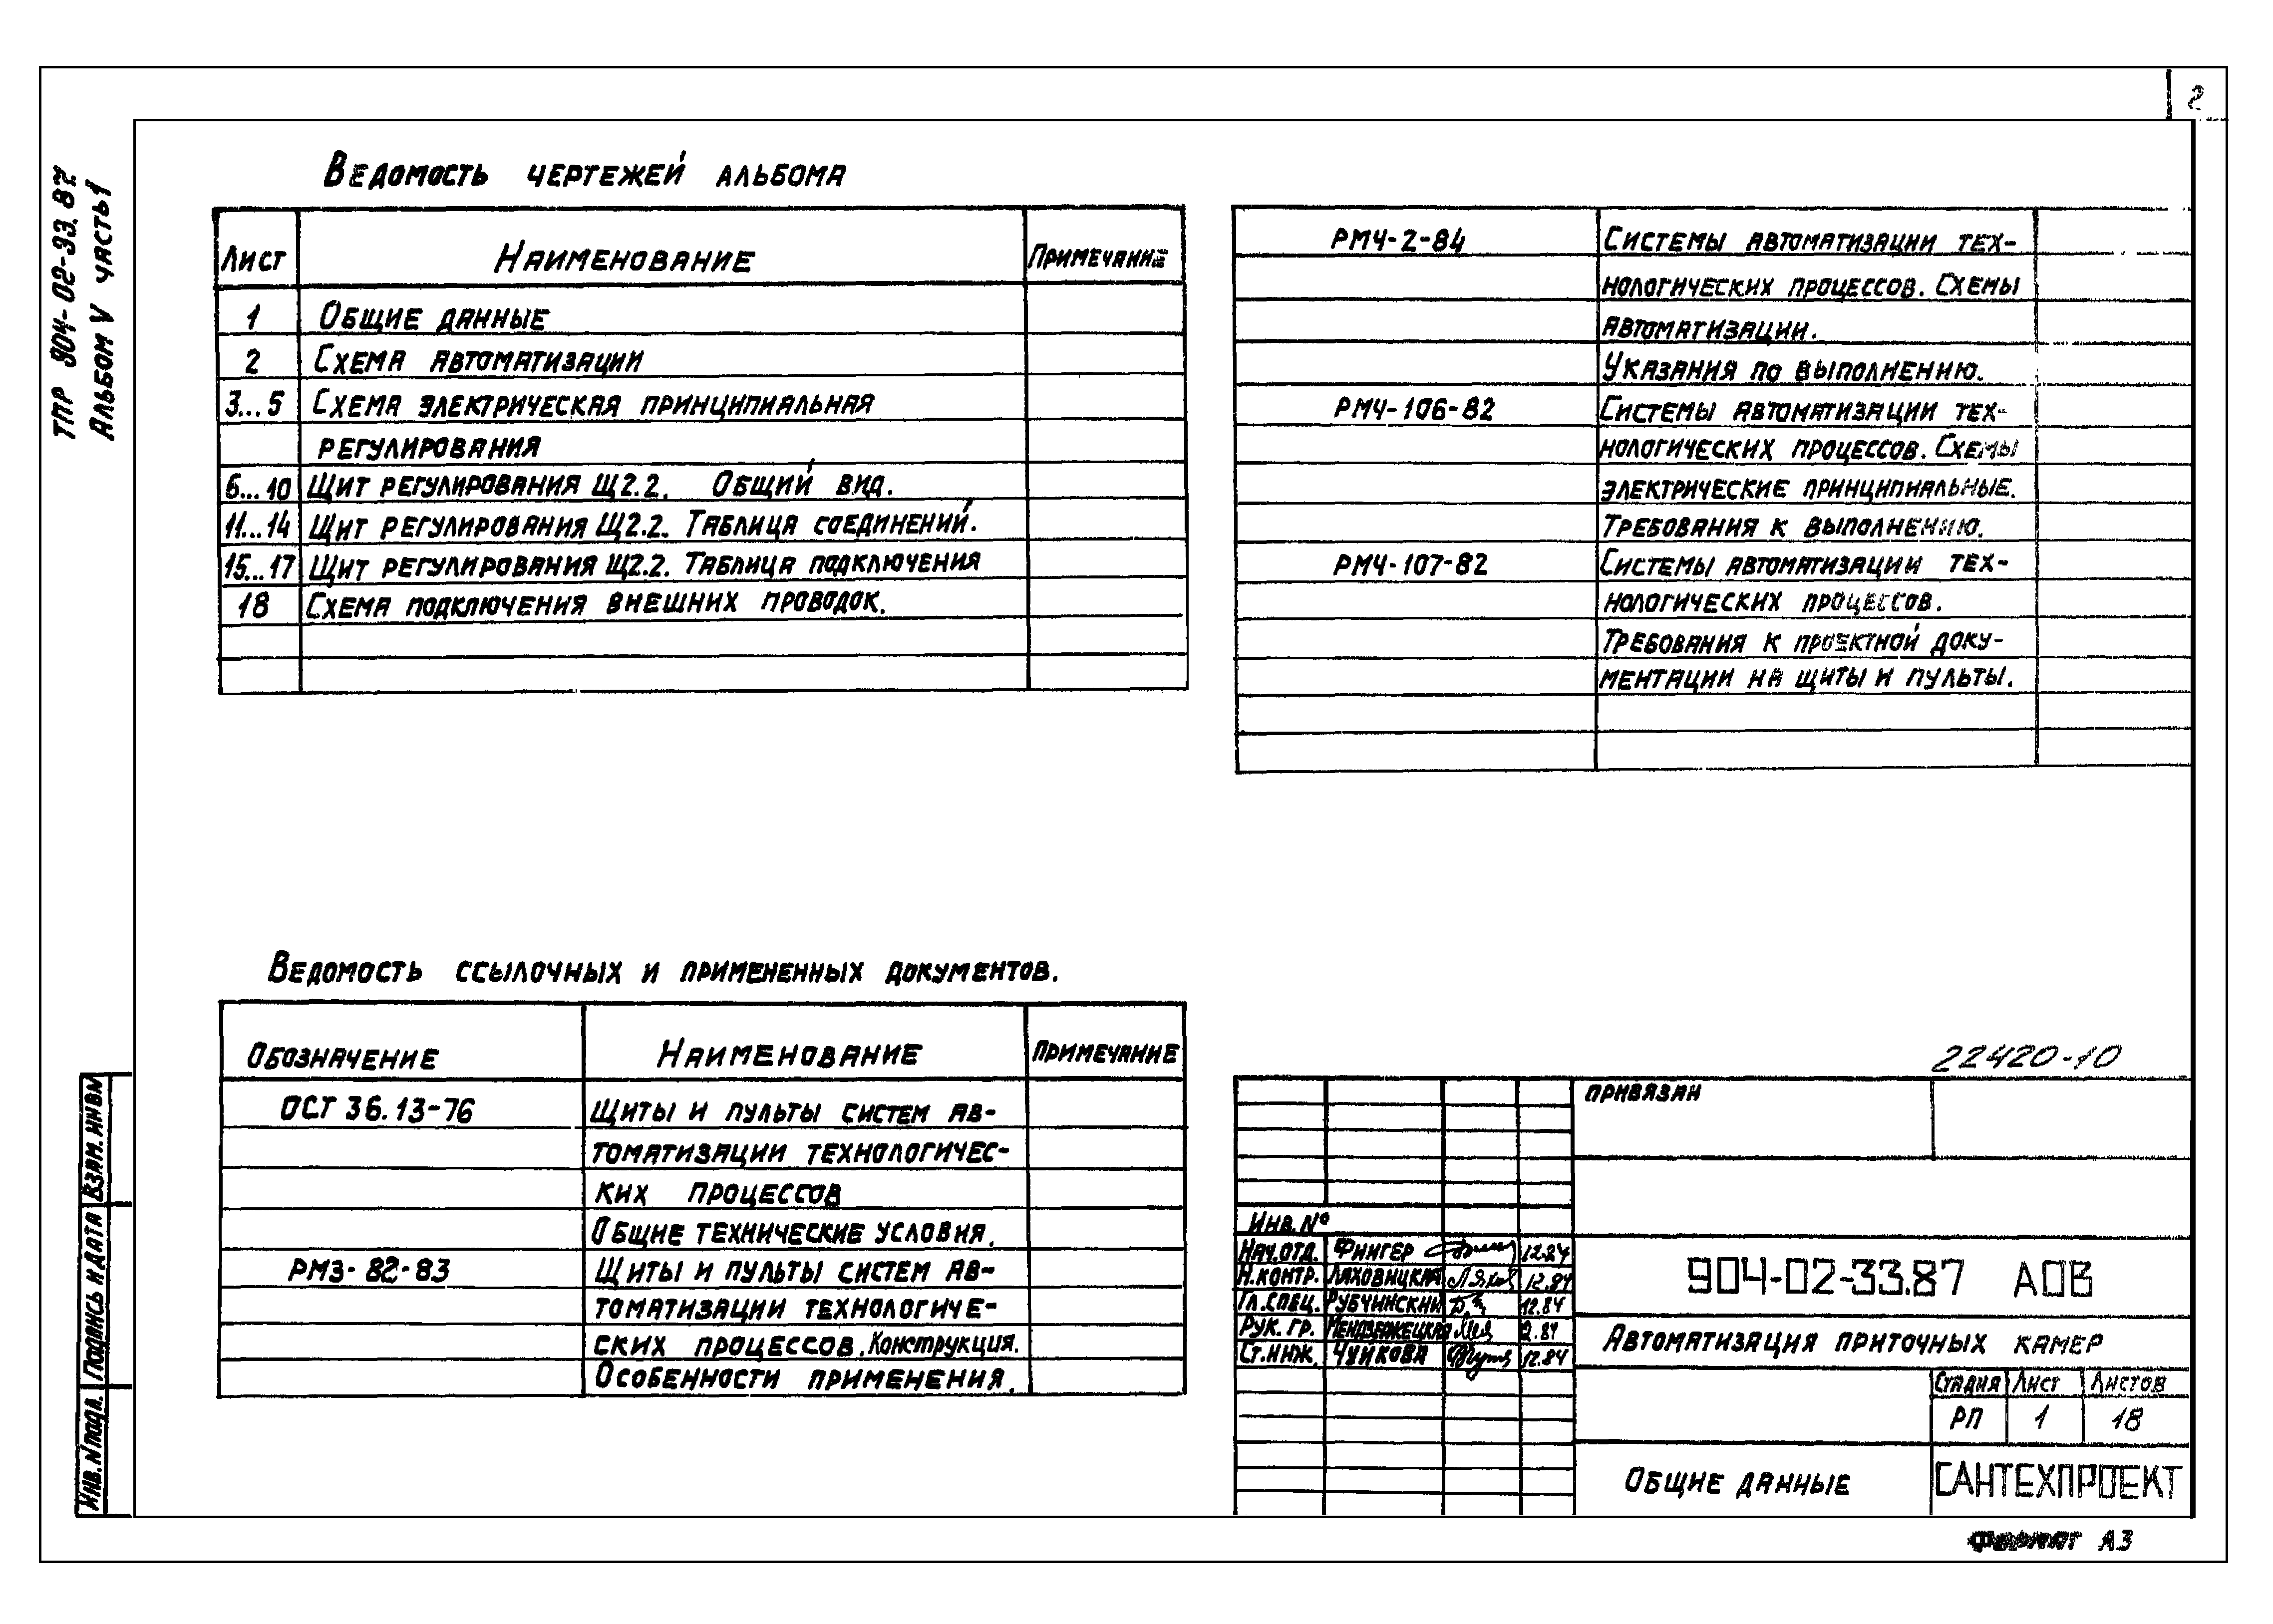 2
ТПР 904-02-33.87
Альбом V часть 1
Ведомость чертежей альбома
Лист Наименование Примечание
1 Общие данные
2 Схема автоматизации
3...5 Схема электрическая принципиальная
регулирования
6...10 Щит регулирования Щ2.2. Общий вид.
11...14 Щит регулирования Щ2.2. Таблица соединений.
15...17 Щит регулирования Щ2.2. Таблица подключения
18 Схема подключения внешних проводок.
РМ4-2-84 Системы автоматизации тех-
нологических процессов. Схемы
автоматизации.
Указания по выполнению.
РМ4-106-82 Системы автоматизации тех-
нологических процессов. Схемы
электрические принципиальные.
Требования к выполнению.
РМ4-107-82 Системы автоматизации тех-
нологических процессов.
Требования к проектной доку-
ментации на щиты и пульты.
Ведомость ссылочных и примененных документов.
Обозначение Наименование Примечание
ОСТ 36.13-76 Щиты и пульты систем ав-
томатизации технологичес-
ких процессов
Общие технические условия.
РМ3-82-83 Щиты и пульты систем ав-
томатизации технологиче-
ских процессов. Конструкция.
Особенности применения.
22420-10
Привязан
Инв. №
Нач. отд. Фингер 12.84
Н. контр. Ляховицкая 12.84
Гл. спец. Рубчинский 12.84
Рук. гр. 12.84
Ст. инж. Чуйкова 12.84
904-02-33.87 АОВ
Автоматизация приточных камер
Стадия Лист Листов
РП 1 18
Общие данные
САНТЕХПРОЕКТ
Формат А3
Взам. инв. №
Подпись и дата
Инв. № подл.